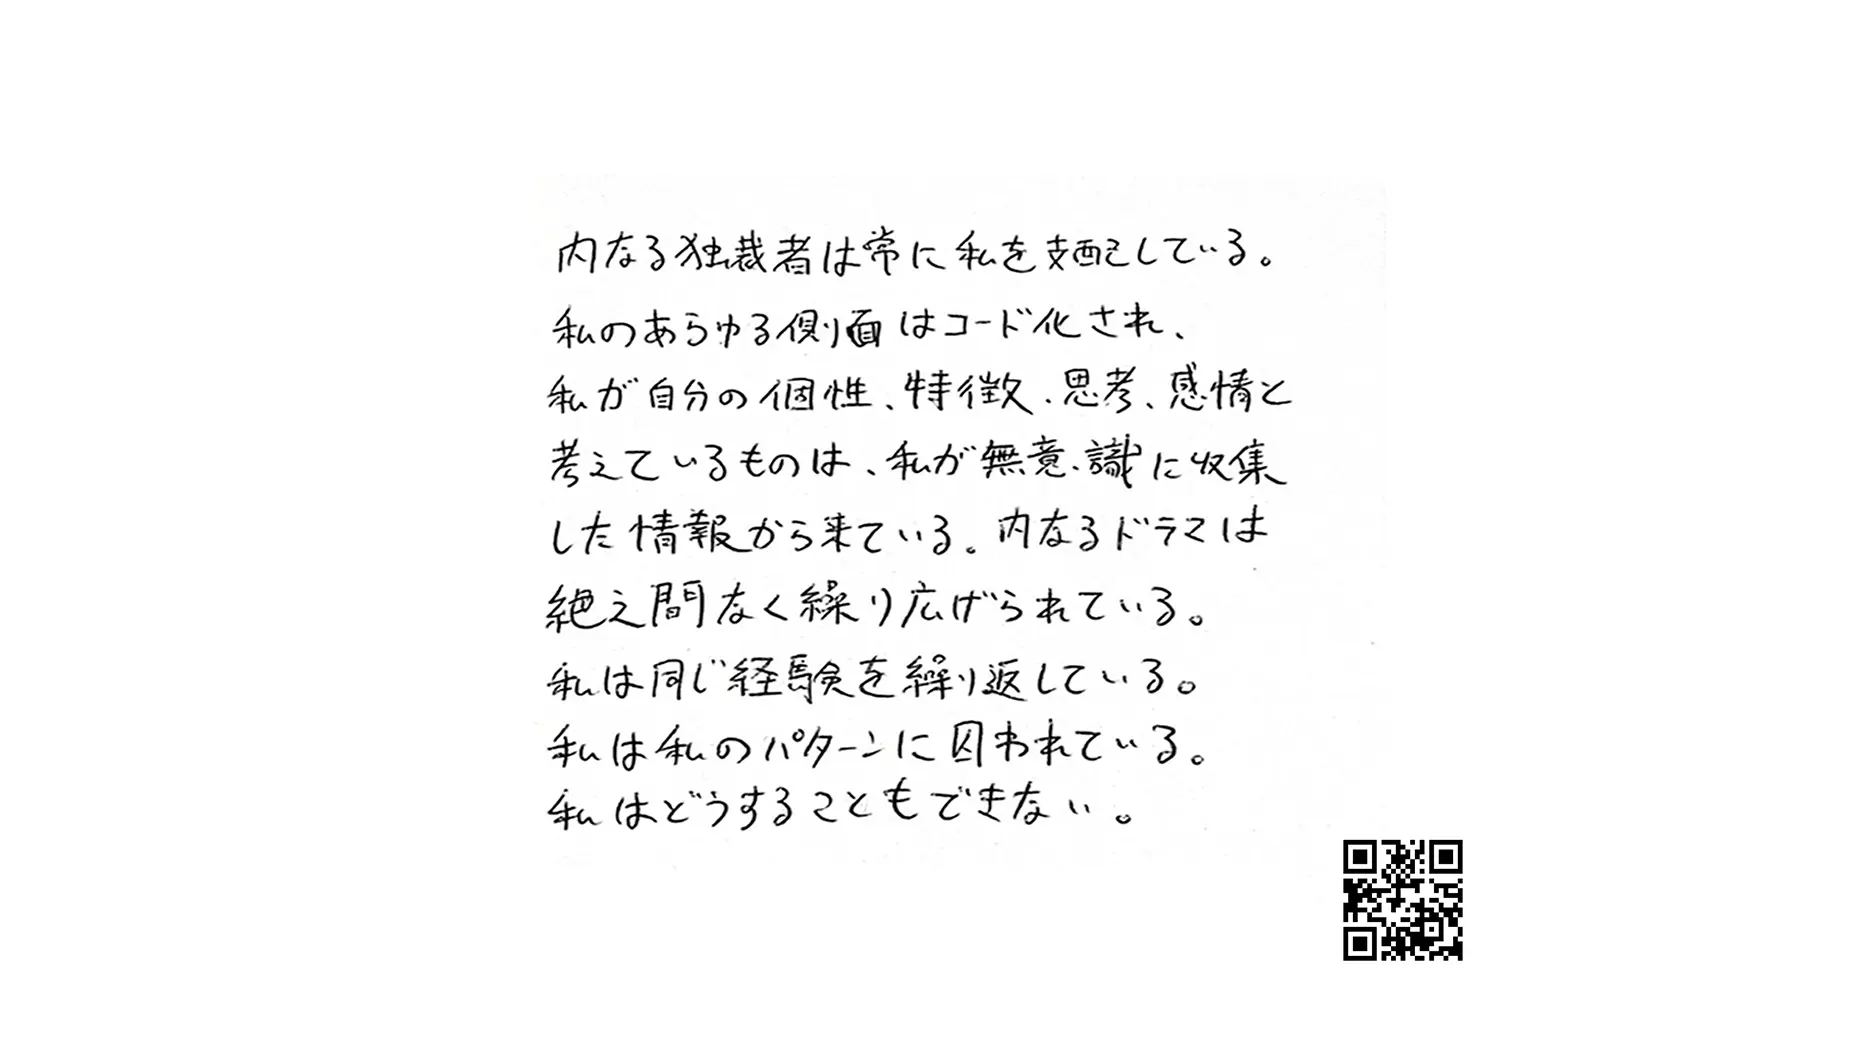 内なる独裁者は常に私を支配している。
私のあらゆる側面はコード化され、
私が自分の個性、特徴、思考、感情と
考えているものは、私が無意識に収集
した情報から来ている。内なるドラマは
絶え間なく繰り広げられている。
私は同じ経験を繰り返している。
私は私のパターンに囚われている。
私はどうすることもできない。